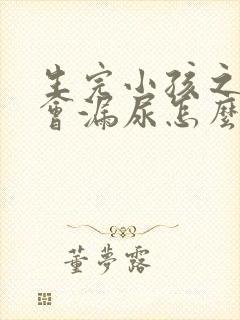 生完小孩之
會漏尿怎麼
董夢露